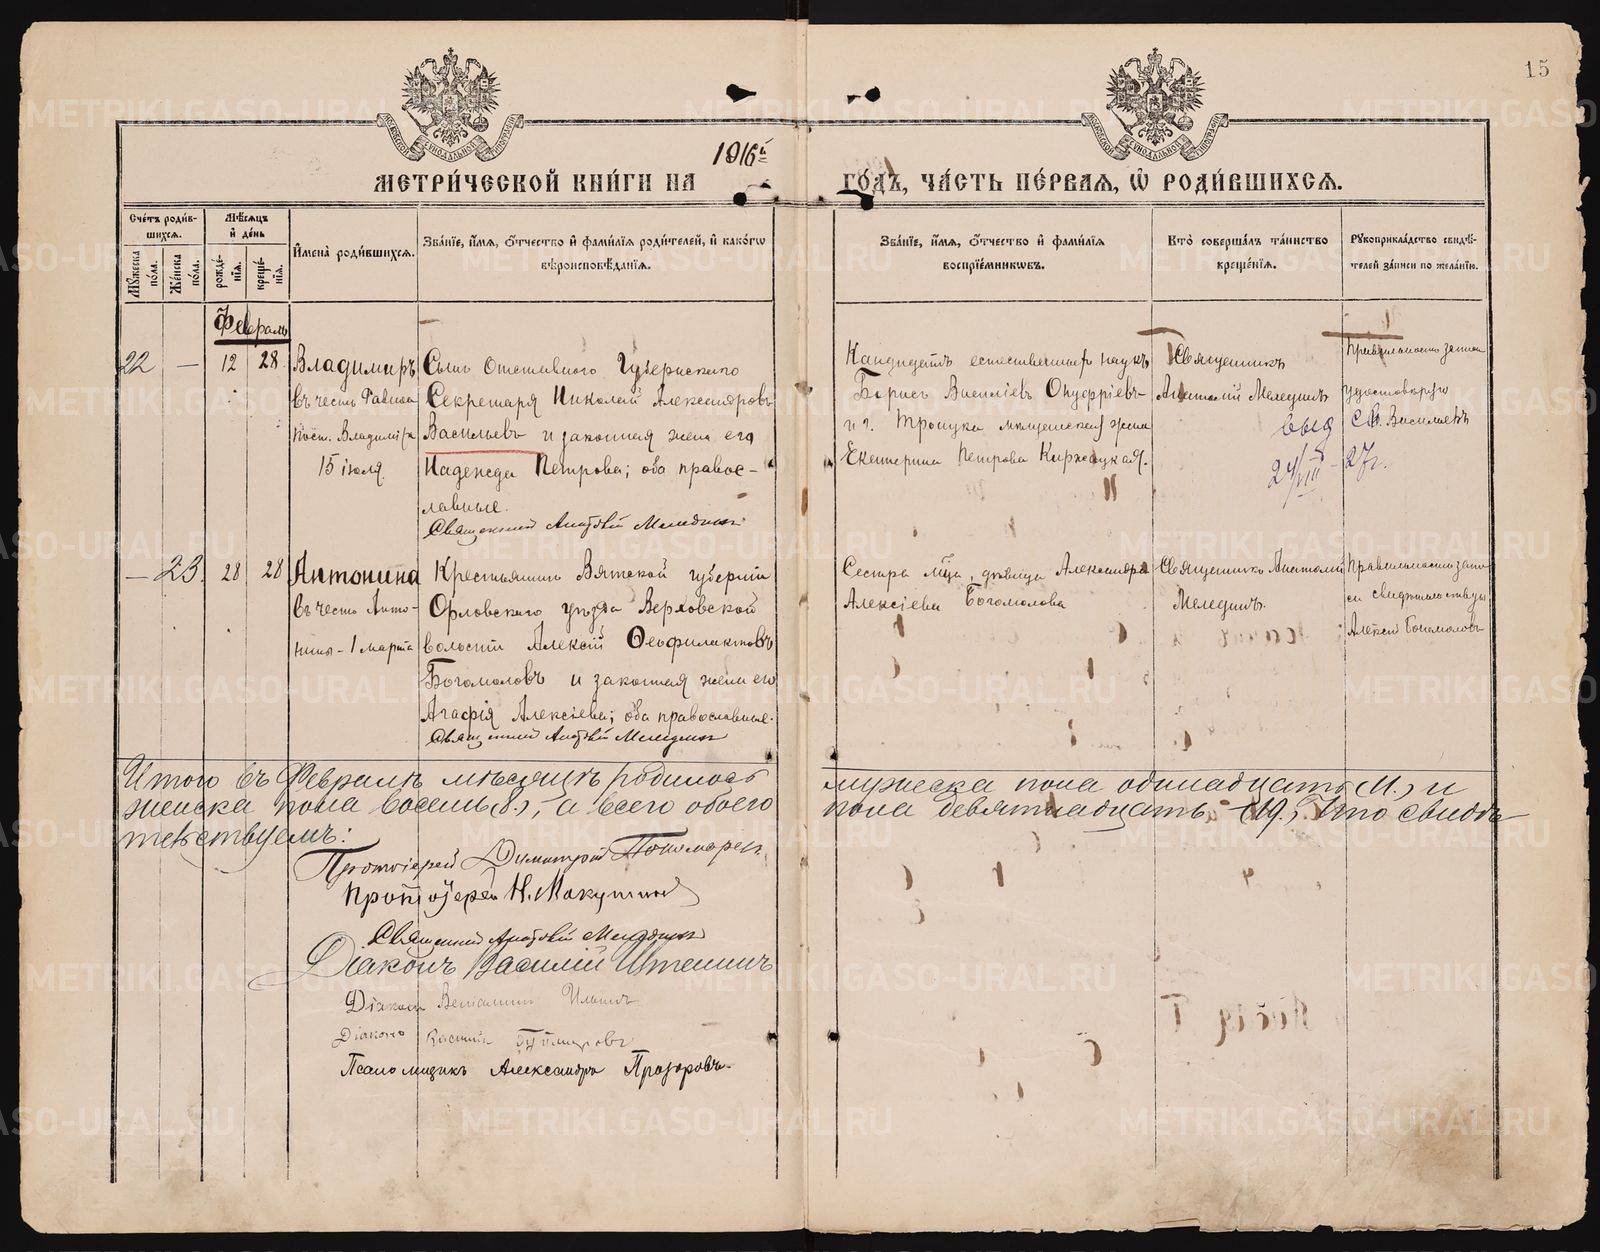 15
1916й
МЕТРИ́ЧЕСКОЙ КНИ́ГИ НА
ГО́ДЪ, ЧА́СТЬ ПЕ́РВАЯ, Ѡ҆ РОДИ́ВШИХСЯ.
Сче́тъ роди́в-
шихся.
Мѣ́сяцъ
и҆ де́нь
Мꙋ́жеска
по́ла.
Же́нска
по́ла.
рожде́-
нїя.
креще́-
нїя.
И҆мена̀ роди́вшихся.
Зва́нїе, и҆́мя, ѻ҆́тчество и҆ фами́лїя роди́телей, и҆ како́гѡ
вѣроисповѣ́данїя.
Зва́нїе, и҆́мя, ѻ҆́тчество и҆ фами́лїя
воспрїе́мникѡвъ.
Кто̀ соверша́лъ та́инство
креще́нїя.
Рꙋкоприкла́дство свидѣ́-
телей за́писи по жела́нїю.
Февраль
22 — 12 28
Владимиръ
въ честь Равноа
пост. Владимира
15 іюля.
Сынъ Отставного Губернскаго
Секретаря Николай Александровъ
Васильевъ и законная жена его
Надежда Петрова; оба правос-
лавные.
Священникъ Анатолій Мелединъ
Кандидатъ естественныхъ наукъ
Борисъ Васильевъ Онуфріевъ
и г. Троицка мѣщанская жена
Екатерина Петрова
Священникъ
Анатолій Мелединъ
выд
24/VIII - 27г.
Правильность записи
удостовѣряю
Васильевъ
— 23. 28 28
Антонина
въ честь Анто-
нины - 1 марта
Крестьянинъ Вятской губерніи
Орловскаго уѣзда Верховской
волости Алексій Ѳеофилактовъ
Богомоловъ и законная жена его
Агафія Алексіева; оба православные.
Священникъ Анатолій Мелединъ
Сестра дѣвица Александра
Алексіева Богомолова
Священникъ Анатолій
Мелединъ.
Правильность запи-
си свидѣтельствую
Алексій Богомоловъ
Итого въ Февралѣ мѣсяцѣ родилось мужеска пола одинадцать (11.) и
женска пола восемь (8.), а всего обоего пола девятнадцать (19.), что свидѣ-
тельствуемъ:
Протоіерей Димитрій Пономаревъ
Протоіерей Н. Макушинъ
Священникъ Анатолій Мелединъ
Діаконъ Василій
Діаконъ Веніаминъ
Діаконъ
Псаломщикъ Александръ Прозоровъ.
METRIKI.GASO-URAL.RU